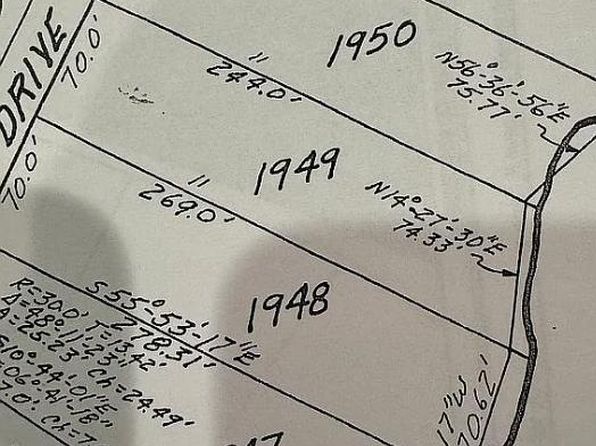 DRIVE
70.0'
70.0'
1950
"
244.0'
N56°-36'-56"E
75.77'
1949
"
269.0'
N14°-27'-30"E
74.33'
1948
S55°-53'-17"E
278.31'
R=30.0' T=13.42'
Δ=48°-11'-23"
A=25.23' Ch=24.49'
S10°-44'-01"E
=06°-41'-18"
7.0' Ch=7
17"W
70.62'